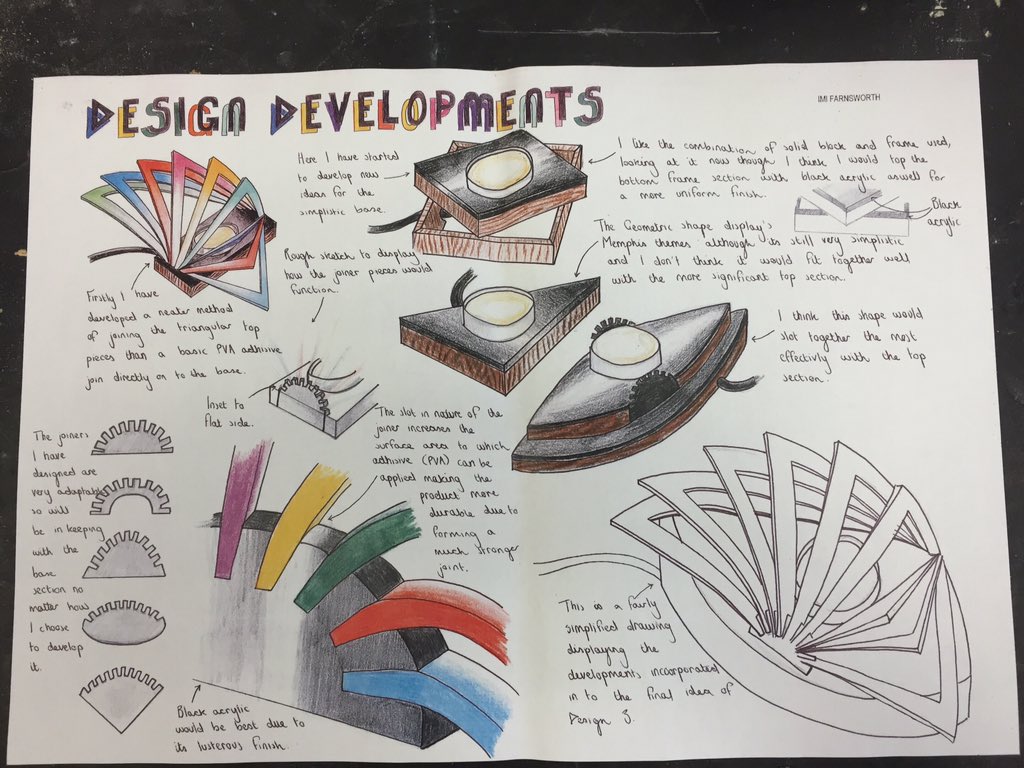 DESIGN DEVELOPMENTS
IMI FARNSWORTH
Here I have started
to develop new
ideas for the
simplistic base.
I like the combination of solid block and frame used,
looking at it now though I think I would top the
bottom frame section with black acrylic aswell for
a more uniform finish.
Black
acrylic
The Geometric shape display's
Memphis themes although its still very simplistic
and I don't think it would fit together well
with the more significant top section.
Rough sketch to display
how the joiner pieces would
function.
Firstly I have
developed a neater method
of joining the triangular top
pieces than a basic PVA adhisive
join directly on to the base.
I think this shape would
slot together the most
effectively with the top
section.
Inset to
flat side.
The slot in nature of the
joiner increases the
surface area to which
adhisive (PVA) can be
applied making the
product more
durable due to
forming a
much stronger
joint.
The joiners
I have
designed are
very adaptable
so will
be in keeping
with the
base
section no
matter how
I choose
to develop
it.
This is a fairly
simplified drawing
displaying the
developments incorporated
in to the final idea of
Design 3.
Black acrylic
would be best due to
its lusterous finish.